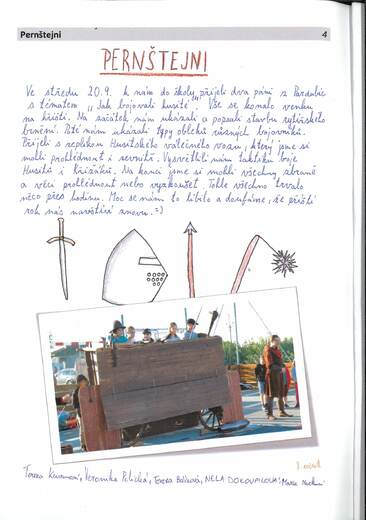 Pernštejni 4
PERNŠTEJNI
Ve středu 20.9. k nám do školy přijeli dva páni z Pardubic
s tématem "Jak bojovali husité". Vše se konalo venku
na hřišti. Na začátek nám ukázali a popsali stavbu rytířského
brnění. Poté nám ukázali typy obleků různých bojovníků.
Přijeli s replikou Husitského válečného vozu, který jsme si
mohli prohlédnout i zevnitř. Vysvětlili nám taktiku boje
Husitů i Křižáků. Na konci jsme si mohli všechny zbraně
a věci prohlédnout nebo vyzkoušet. Tohle všechno trvalo
něco přes hodinu. Moc se nám to líbilo a doufáme, že příští
rok nás navštíví znovu. =)
Tereza Veronika Tereza NELA